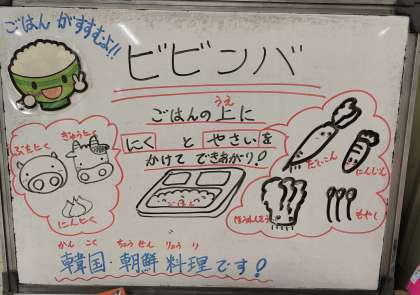 ごはん がすすむよ!!
ビビンバ
ごはんの上に
うえ
にく と やさい を
かけて できあがり!
ぶたにく
ぎゅうにく
にんにく
ごはん
だいこん
にんじん
ほうれんそう
もやし
かん こく ちょう せん りょう り
韓国・朝鮮料理です!